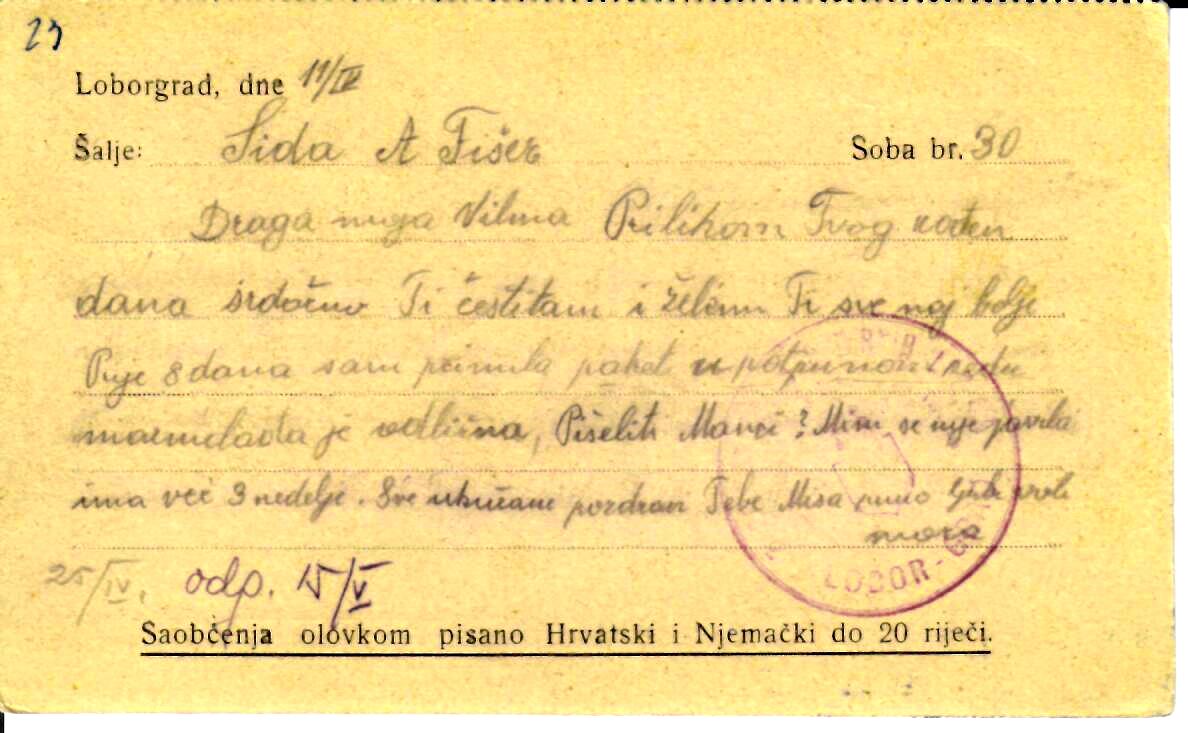 23
Loborgrad, dne 11/IV
Šalje: Sida A Fišer Soba br. 30
Draga moja Vilma Prilikom Tvog rođen
dana srdačno Ti čestitam i želim Ti sve naj bolje
Prije 8 dana sam primila paket u potpunom redu
marmelada je odlična, Pišeliti Manci? Mimi se nije javila
ima već 3 nedelje. Sve ukućane pozdravi Tebe Misa puno ljubi voli
25/IV. odp. 15/V
LOBOR-
Saobćenja olovkom pisano Hrvatski i Njemački do 20 riječi.